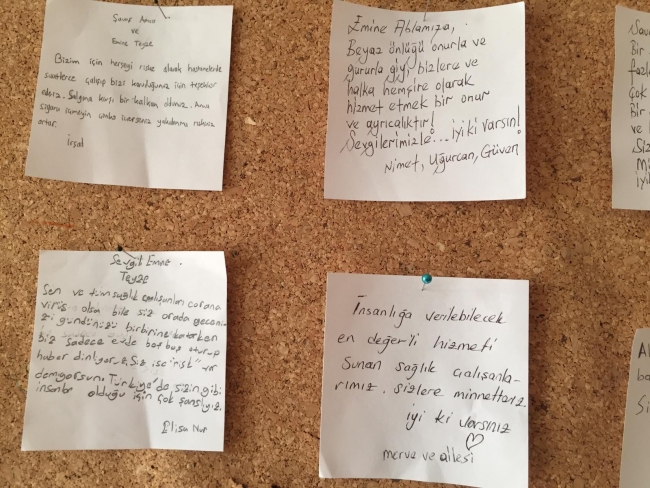 Emine Teyze
Bizim için herşeyi riske alarak hastanelerde
saatlerce çalışıp bizi koruduğunuz için teşekkür
ederiz. Salgına karşı bir kalkan oldunuz. Ama
sigara içmeyin
artar.
İrşal
Emine Ablamıza,
Beyaz önlüğü onurla ve
gururla giyip bizlere ve
halka hemşire olarak
hizmet etmek bir onur
ve ayrıcalıktır!
Sevgilerimizle... iyiki varsın!
Nimet, Uğurcan, Güven
Sevgili Emine
Teyze
Sen ve tüm sağlık çalışanları corona
virüs olsa bile siz orada gecenizi
gündünüzü birbirine katarken
biz sadece evde bomboş oturup
haber dinliyoruz. Siz ise "risk" var
demiyorsun. Türkiye'de sizin gibi
insanlar olduğu için çok şanslıyız.
Elisa Nur
İnsanlığa verilebilecek
en değerli hizmeti
Sunan sağlık çalışanla-
rımız. sizlere minnettarız
iyi ki varsınız
merve ve ailesi
Bir
fazla
Çok
Bir
ve
Siz